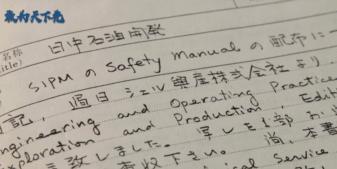 敢为天下先
名称
(title)
日中石油開発
SIPMの Safety Manual の配布に
記, 過日 シェル興産株式会社より,
Engineering and Operating Practice
Exploration and Production, Edit
致しました. 写しを1部お
査収下さい. 尚, 本書
ical Service